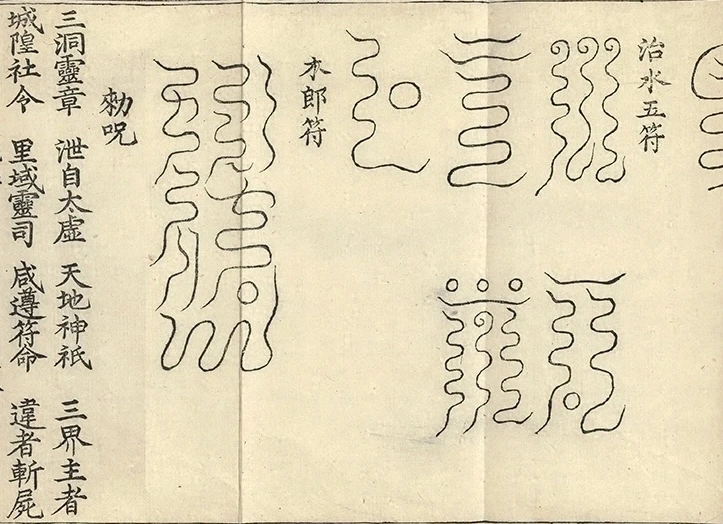 治水五符
木郎符
勑呪
三洞靈章 泄自太虛 天地神祇 三界主者
城隍社令 里域靈司 咸遵符命 違者斬屍